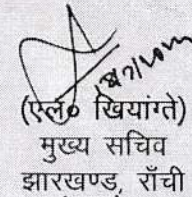 (एल० खियांग्ते)
मुख्य सचिव
झारखण्ड, राँची